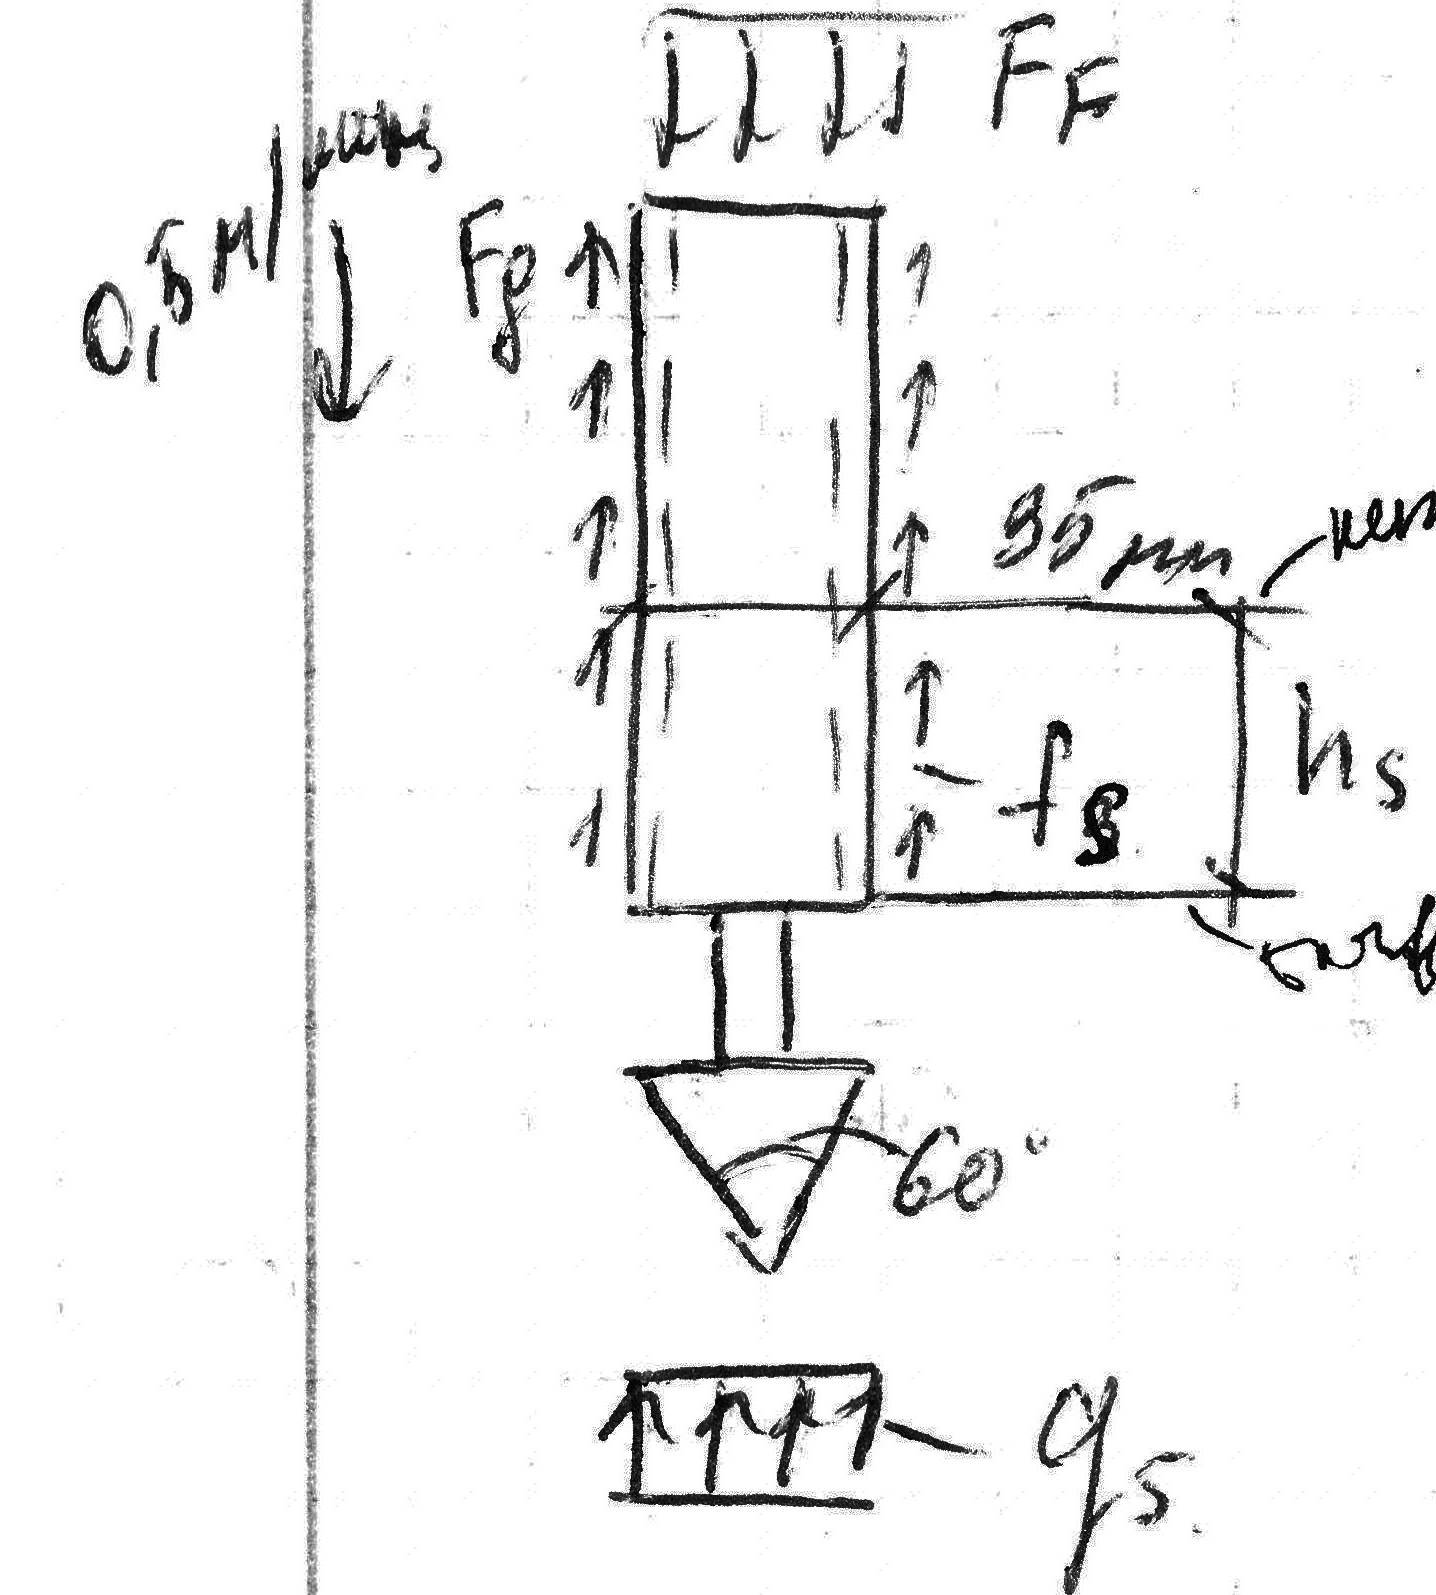 F_F
0,5 м/мин
F_g
35 мм
h_s
f_s
60°
q_s